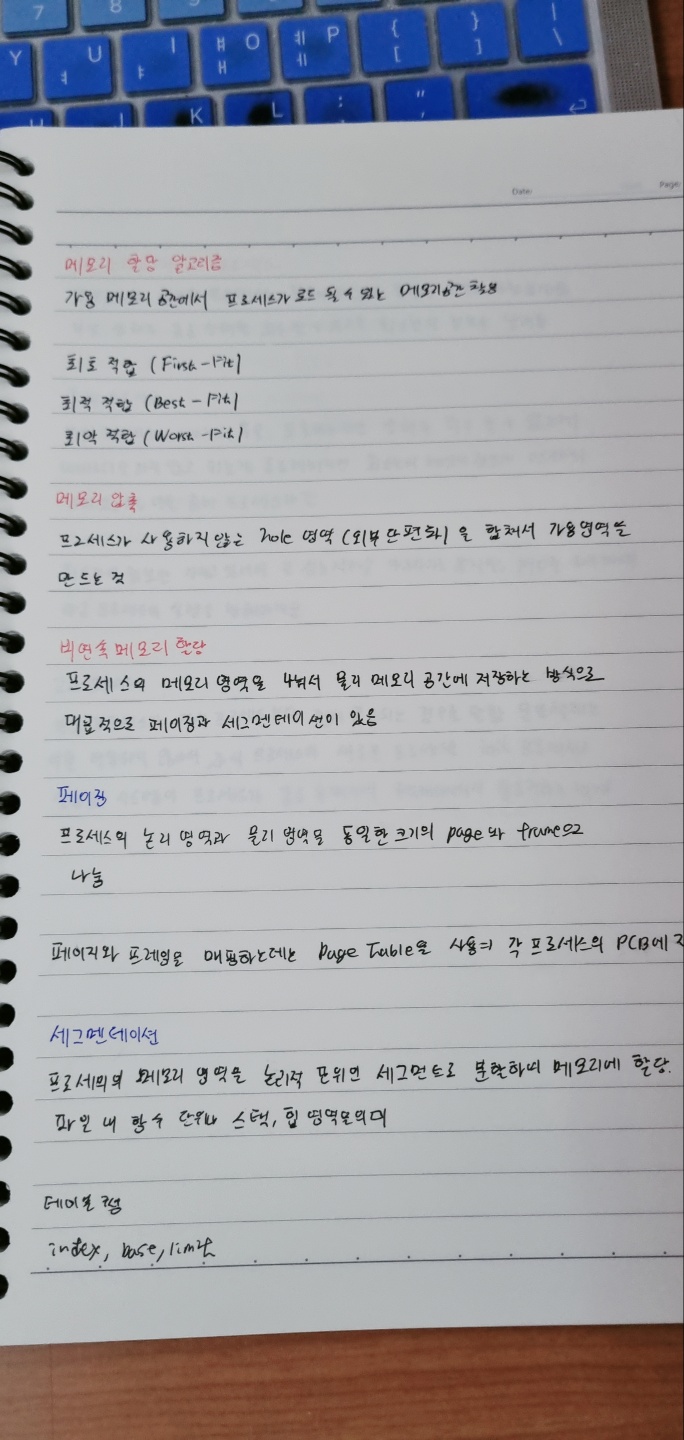 7 8 9
Y U ㅕ I ㅑ O ㅒ ㅐ P ㅖ ㅔ { [ } ] | \
J K L : ; " '
Date Page
메모리 할당 알고리즘
가용 메모리 공간에서 프로세스가 로드 될 수 있는 메모리공간 할당
최초 적합 (First-Fit)
최적 적합 (Best-Fit)
최악 적합 (Worst-Fit)
메모리 압축
프로세스가 사용하지 않는 hole 영역 (외부 단편화)을 합쳐서 가용영역을
만드는 것
비연속 메모리 할당
프로세스의 메모리 영역을 나눠서 물리 메모리 공간에 저장하는 방식으로
대표적으로 페이징과 세그멘테이션이 있음
페이징
프로세스의 논리 영역과 물리 영역을 동일한 크기의 page와 frame으로
나눔
페이지와 프레임을 매핑하는데는 Page Table을 사용 각 프로세스의 PCB에
세그멘테이션
프로세의의 메모리 영역을 논리적 단위인 세그먼트로 분할하며 메모리에 할당.
파일 내 함수 단위나 스택, 힙 영역을의미
테이블 구성
index, base, limit